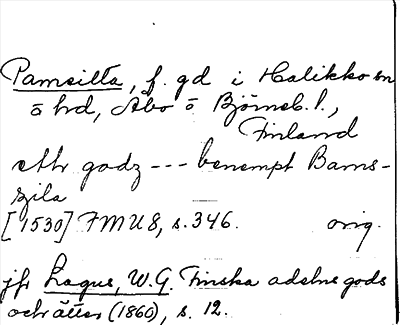 Pamsilta, f. gd i Halikko sn
o hd, Åbo o Björneb. l.,
Finland
ett godz --- benempt Bams-
zila
[1530] FMU 8, s. 346. orig.
jfr Lagus, W.G. Finska adelns gods
och ätter (1860), s. 12.